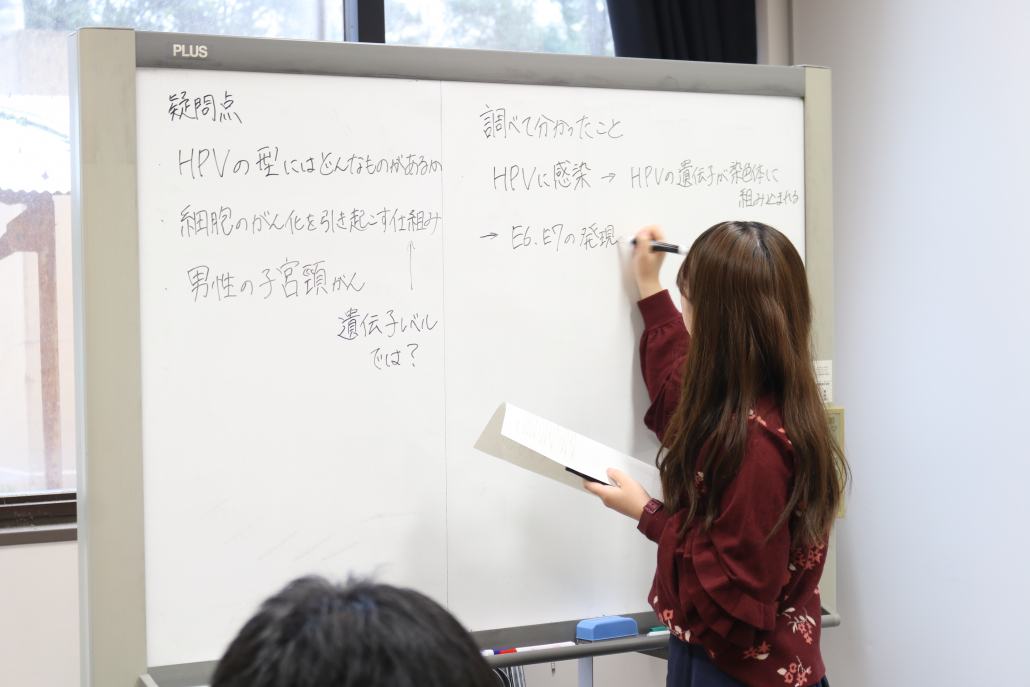 PLUS
疑問点
・HPVの型にはどんなものがあるか
・細胞のがん化を引き起こす仕組み
・男性の子宮頸がん
遺伝子レベル
では?
調べて分かったこと
HPVに感染 → HPVの遺伝子が染色体に
組み込まれる
→ E6.E7の発現